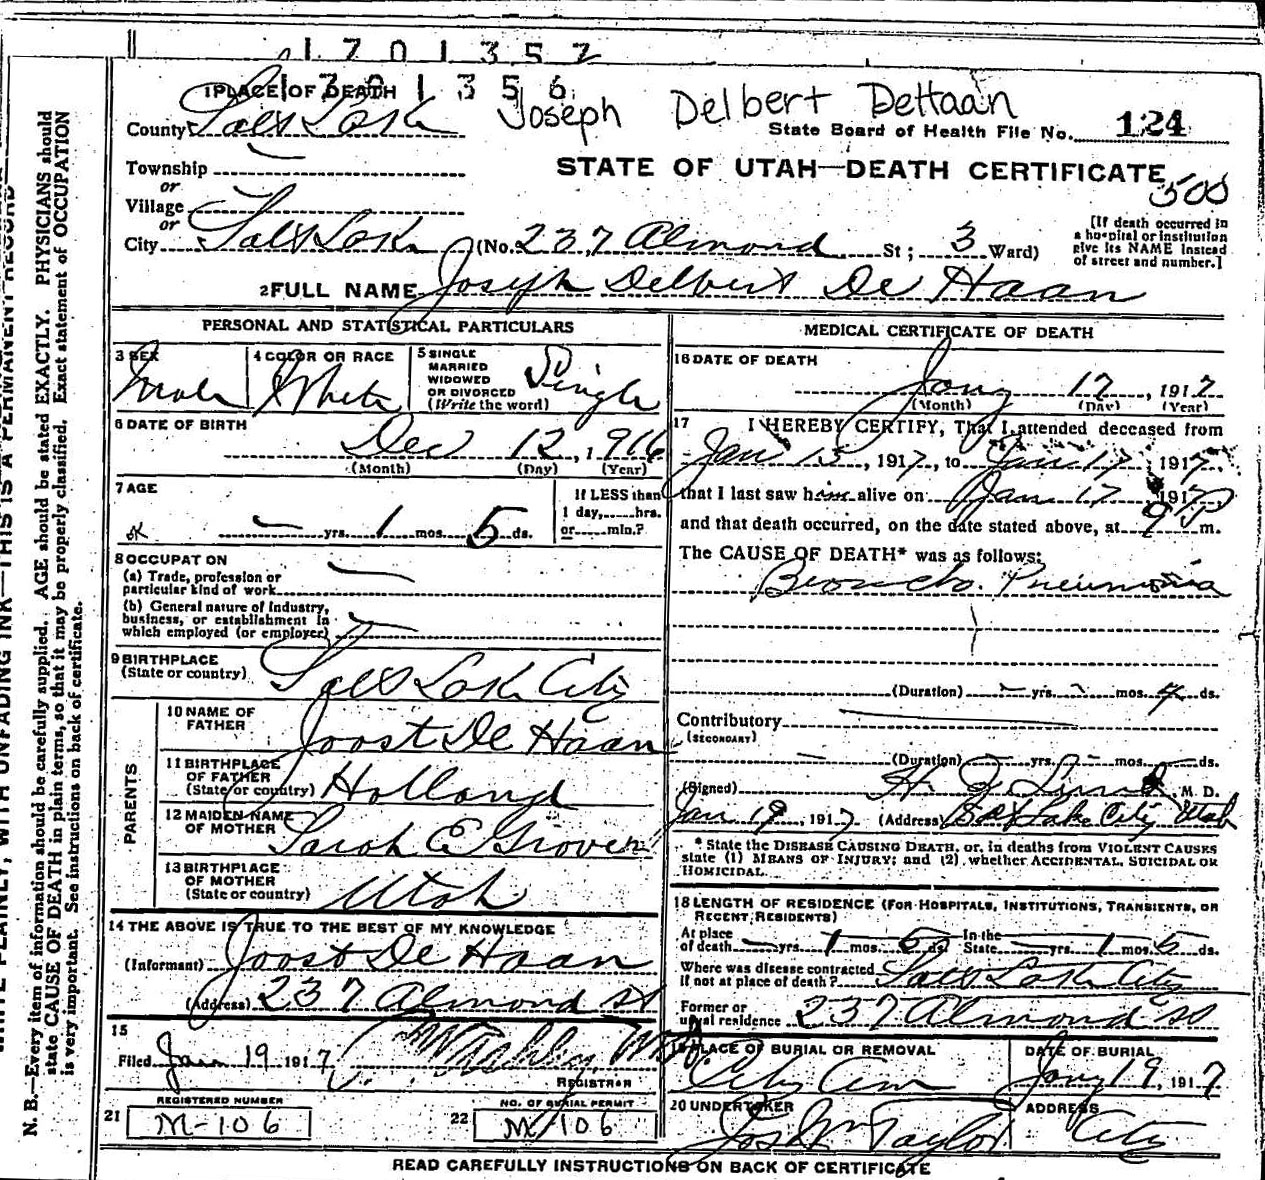 1701357
1701356
1 PLACE OF DEATH
Joseph Delbert DeHaan
County Salt Lake
State Board of Health File No. 124
Township
or
Village
or
STATE OF UTAH—DEATH CERTIFICATE
500
City Salt Lake (No. 237 Almond St; 3 Ward)
[If death occurred in
a hospital or institution
give its NAME instead
of street and number.]
2 FULL NAME Joseph Delbert De Haan
PERSONAL AND STATISTICAL PARTICULARS
3 SEX Male
4 COLOR OR RACE White
5 SINGLE
MARRIED
WIDOWED
OR DIVORCED
(Write the word) Single
6 DATE OF BIRTH
Dec 12, 1916
(Month) (Day) (Year)
7 AGE
— yrs. 1 mos. 5 ds.
If LESS than
1 day, hrs.
or min.?
8 OCCUPATION
(a) Trade, profession or
particular kind of work —
(b) General nature of industry,
business, or establishment in
which employed (or employer) —
9 BIRTHPLACE
(State or country) Salt Lake City
PARENTS
10 NAME OF
FATHER Joost De Haan
11 BIRTHPLACE
OF FATHER
(State or country) Holland
12 MAIDEN NAME
OF MOTHER Sarah E Grover
13 BIRTHPLACE
OF MOTHER
(State or country) Utah
14 THE ABOVE IS TRUE TO THE BEST OF MY KNOWLEDGE
(Informant) Joost De Haan
(Address) 237 Almond St
15
Filed Jan 19 1917
REGISTRAR
REGISTERED NUMBER
21 M-106
NO. OF BURIAL PERMIT
22 M/106
MEDICAL CERTIFICATE OF DEATH
16 DATE OF DEATH
Jany 17, 1917
(Month) (Day) (Year)
17 I HEREBY CERTIFY, That I attended deceased from
Jan 15, 1917, to Jan 17, 1917,
that I last saw him alive on Jan 17, 1917
and that death occurred, on the date stated above, at 9 P m.
The CAUSE OF DEATH* was as follows:
Broncho Pneumonia
(Duration) — yrs. — mos. 4 ds.
Contributory
(SECONDARY)
(Duration) — yrs. — mos. — ds.
(Signed) M. D.
Jan 19, 1917 (Address) Salt Lake City Utah
* State the DISEASE CAUSING DEATH, or, in deaths from VIOLENT CAUSES
state (1) MEANS OF INJURY; and (2) whether ACCIDENTAL, SUICIDAL OR
HOMICIDAL.
18 LENGTH OF RESIDENCE (FOR HOSPITALS, INSTITUTIONS, TRANSIENTS, OR
RECENT RESIDENTS)
At place
of death — yrs. 1 mos. 5 ds. In the State — yrs. 1 mos. 5 ds.
Where was disease contracted
if not at place of death? Salt Lake City
Former or
usual residence 237 Almond St
19 PLACE OF BURIAL OR REMOVAL
City Cem
DATE OF BURIAL
Jany 19, 1917
20 UNDERTAKER
Jos Wm Taylor
ADDRESS
City
READ CAREFULLY INSTRUCTIONS ON BACK OF CERTIFICATE
WRITE PLAINLY, WITH UNFADING INK—THIS IS A PERMANENT RECORD
N. B.—Every item of information should be carefully supplied. AGE should be stated EXACTLY. PHYSICIANS should
state CAUSE OF DEATH in plain terms, so that it may be properly classified. Exact statement of OCCUPATION
is very important. See instructions on back of certificate.